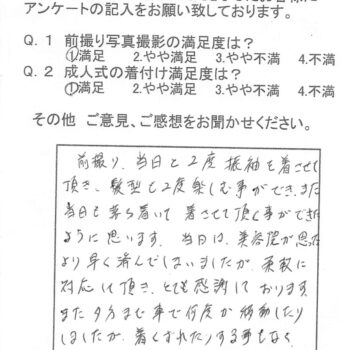 アンケートの記入をお願い致しております。
Q.1 前撮り写真撮影の満足度は?
①満足 2.やや満足 3.やや不満 4.不満
Q.2 成人式の着付け満足度は?
①満足 2.やや満足 3.やや不満 4.不満
その他 ご意見、ご感想をお聞かせください。
前撮り、当日と2度振袖を着させて
頂き、髪型も2度楽しむ事ができ、また
当日も落ち着いて着させて頂く事ができた
ように思います。当日は、美容院が思った
より早く済んでしまいましたが、柔軟に
対応して頂き、とても感謝しております。
また夕方まで車で何度か移動したり
しましたが、着くずれたりする事もなく